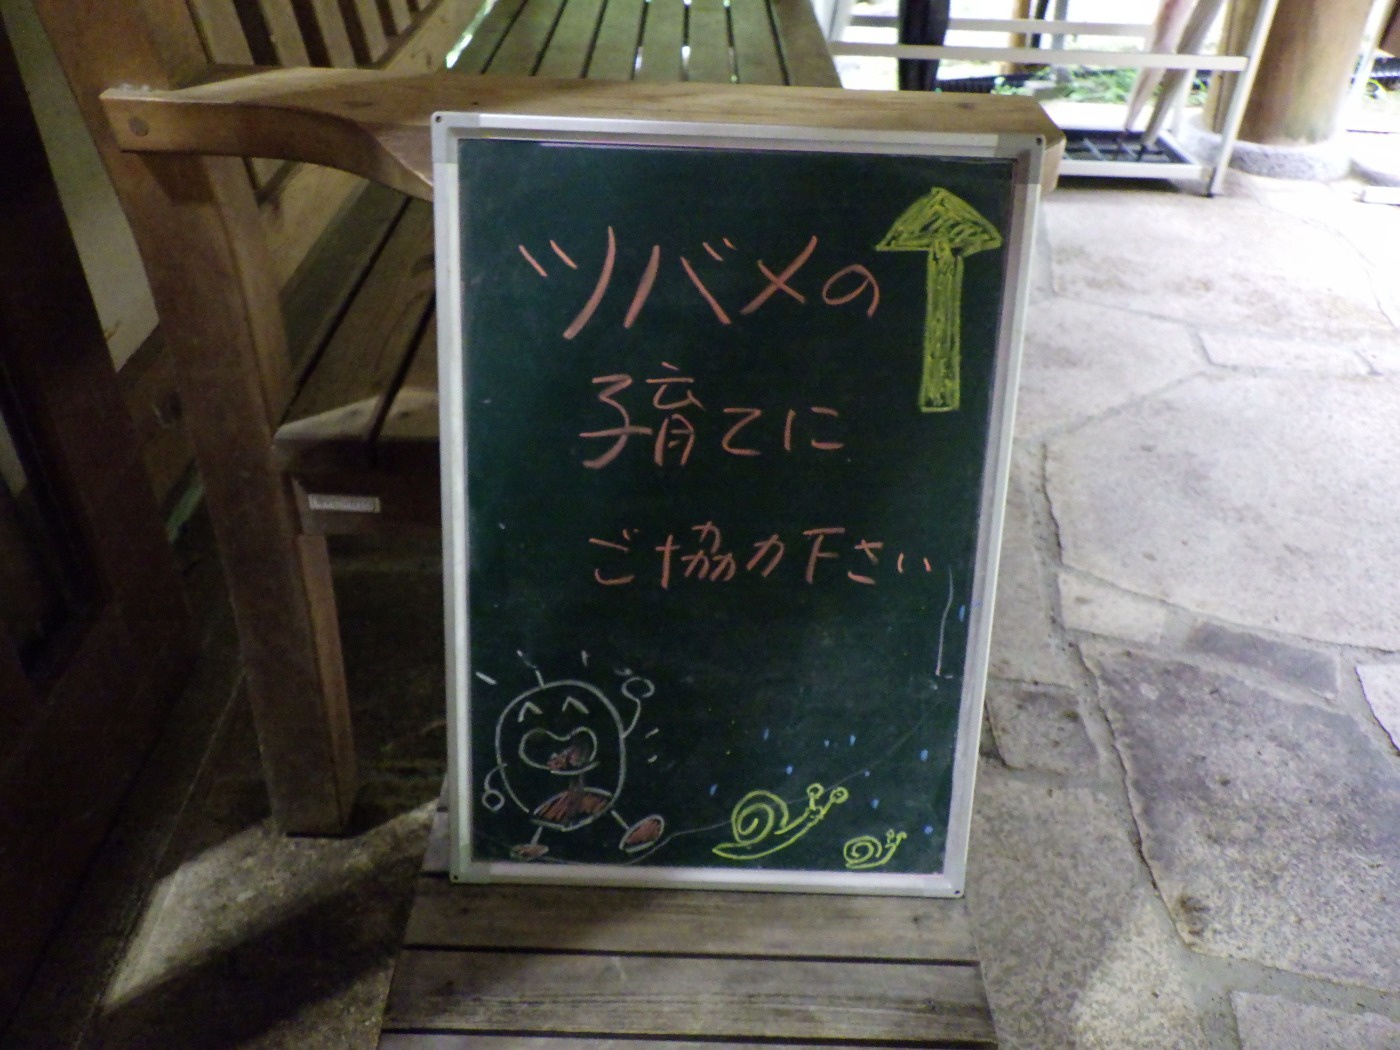 ツバメの
子育てに
ご協力下さい